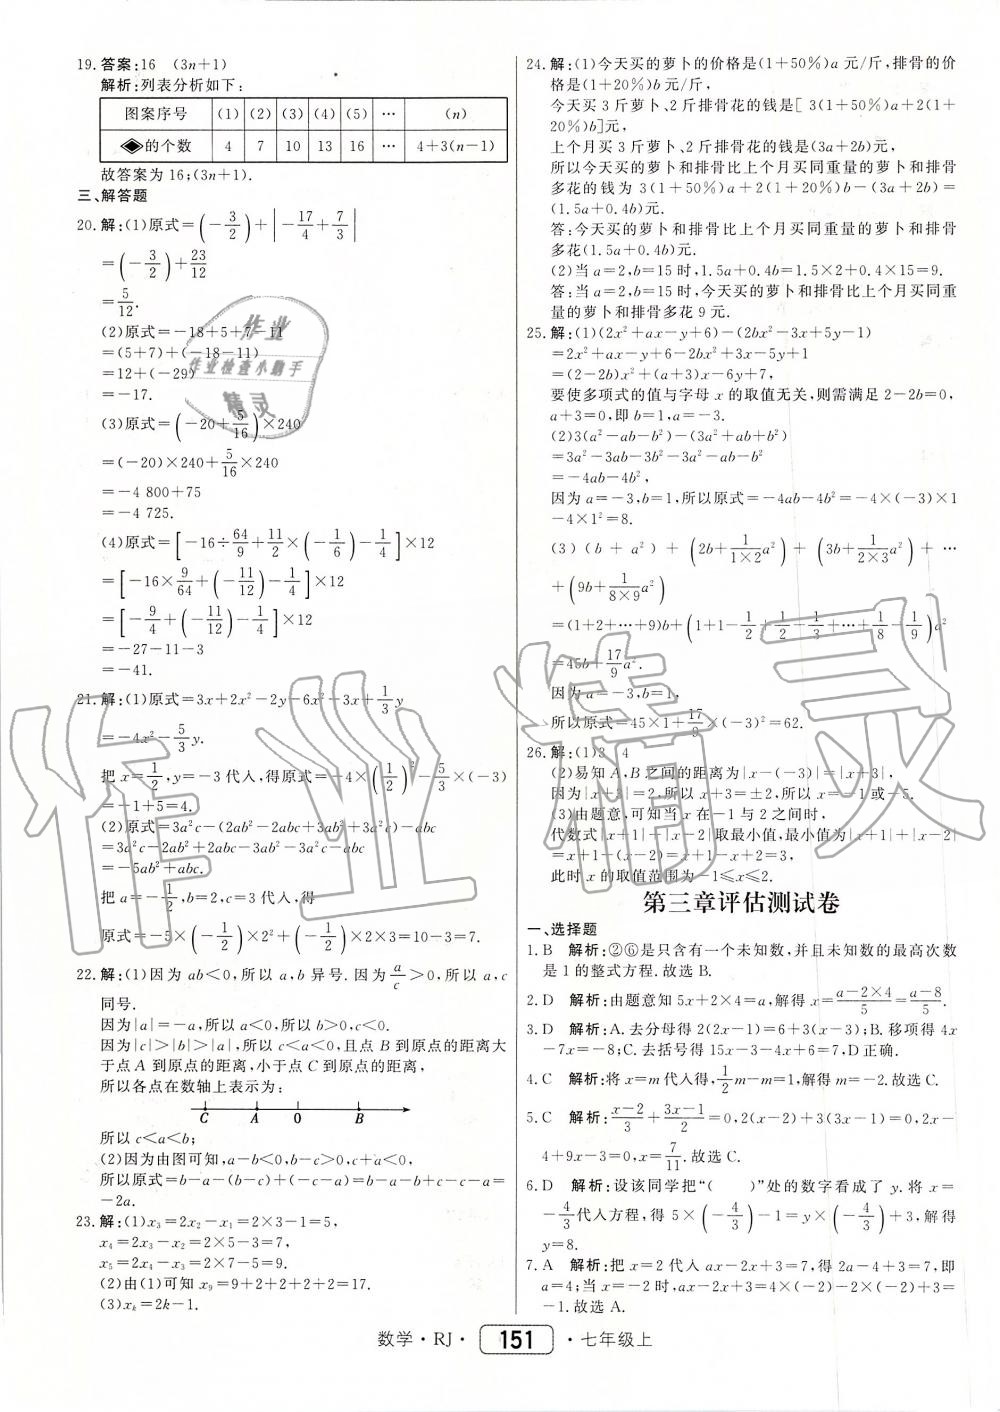 19. 答案:16 (3n+1)
解析:列表分析如下:
图案序号 (1) (2) (3) (4) (5) … (n)
◈的个数 4 7 10 13 16 … 4+3(n-1)
故答案为 16;(3n+1).
三、解答题
20. 解:(1)原式=(-3/2)+|-17/4+7/3|
=(-3/2)+23/12
=5/12.
(2)原式=-18+5+7-11
=(5+7)+(-18-11)
=12+(-29)
=-17.
(3)原式=(-20+5/16)×240
=(-20)×240+5/16×240
=-4 800+75
=-4 725.
(4)原式=[-16÷64/9+11/2×(-1/6)-1/4]×12
=[-16×9/64+(-11/12)-1/4]×12
=[-9/4+(-11/12)-1/4]×12
=-27-11-3
=-41.
21. 解:(1)原式=3x+2x²-2y-6x²-3x+1/3y
=-4x²-5/3y.
把 x=1/2,y=-3 代入,得原式=-4×(1/2)²-5/3×(-3)
=-1+5=4.
(2)原式=3a²c-(2ab²-2abc+3ab²+3a²c)-abc
=3a²c-2ab²+2abc-3ab²-3a²c-abc
=-5ab²+abc.
把 a=-1/2,b=2,c=3 代入,得
原式=-5×(-1/2)×2²+(-1/2)×2×3=10-3=7.
22. 解:(1)因为 ab<0,所以 a,b 异号. 因为a/c>0,所以 a,c
同号.
因为|a|=-a,所以 a<0,所以 b>0,c<0.
因为|c|>|b|>|a|,所以 c<a<0,且点 B 到原点的距离大
于点 A 到原点的距离,小于点 C 到原点的距离,
所以各点在数轴上表示为:
C A 0 B
所以 c<a<b;
(2)因为由图可知,a-b<0,b-c>0,c+a<0,
所以原式=b-a-(b-c)+(-c-a)=b-a-b+c-c-a=
-2a.
23. 解:(1)x₃=2x₂-x₁=2×3-1=5,
x₄=2x₃-x₂=2×5-3=7,
x₅=2x₄-x₃=2×7-5=9.
(2)由(1)可知 x₉=9+2+2+2+2=17.
(3)xₖ=2k-1.
24. 解:(1)今天买的萝卜的价格是(1+50%)a 元/斤,排骨的价
格是(1+20%)b元/斤,
今天买 3 斤萝卜、2 斤排骨花的钱是[ 3(1+50%)a+2(1+
20%)b]元,
上个月买 3 斤萝卜、2 斤排骨花的钱是(3a+2b)元,
所以今天买的萝卜和排骨比上个月买同重量的萝卜和排骨
多花的钱为 3(1+50%)a+2(1+20%)b-(3a+2b)=
(1.5a+0.4b)元.
答:今天买的萝卜和排骨比上个月买同重量的萝卜和排骨
多花(1.5a+0.4b)元.
(2)当 a=2,b=15 时,1.5a+0.4b=1.5×2+0.4×15=9.
答:当 a=2,b=15 时,今天买的萝卜和排骨比上个月买同重
量的萝卜和排骨多花 9 元.
25. 解:(1)(2x²+ax-y+6)-(2bx²-3x+5y-1)
=2x²+ax-y+6-2bx²+3x-5y+1
=(2-2b)x²+(a+3)x-6y+7,
要使多项式的值与字母 x 的取值无关,则需满足 2-2b=0,
a+3=0,即 b=1,a=-3.
(2)3(a²-ab-b²)-(3a²+ab+b²)
=3a²-3ab-3b²-3a²-ab-b²
=-4ab-4b²,
因为 a=-3,b=1,所以原式=-4ab-4b²=-4×(-3)×1
-4×1²=8.
(3)(b+a²)+(2b+1/1×2a²)+(3b+1/2×3a²)+…
+(9b+1/8×9a²)
=(1+2+…+9)b+(1+1-1/2+1/2-1/3+…+1/8-1/9)a²
=45b+17/9a².
因为 a=-3,b=1,
所以原式=45×1+17/9×(-3)²=62.
26. 解:(1)3 4
(2)易知 A,B 之间的距离为|x-(-3)|=|x+3|,
因为|x+3|=2,所以 x+3=±2,所以 x=-1 或-5.
(3)由题意,可知当 x 在-1 与 2 之间时,
代数式|x+1|+|x-2|取最小值,最小值为|x+1|+|x-2|
=x+1-(x-2)=x+1-x+2=3,
此时 x 的取值范围为-1≤x≤2.
第三章评估测试卷
一、选择题
1. B 解析:②⑥是只含有一个未知数,并且未知数的最高次数
是 1 的整式方程. 故选 B.
2. D 解析:由题意知 5x+2×4=a,解得 x=a-2×4/5=a-8/5.
3. D 解析:A. 去分母得 2(2x-1)=6+3(x-3);B. 移项得 4x
-7x=-8;C. 去括号得 15x-3-4x+6=7,D 正确.
4. C 解析:将 x=m 代入得,1/2m-m=1,解得 m=-2. 故选 C.
5. C 解析:x-2/3+3x-1/2=0,2(x-2)+3(3x-1)=0,2x-
4+9x-3=0,x=7/11. 故选 C.
6. D 解析:设该同学把“( )”处的数字看成了 y. 将 x=
-4/3代入方程,得 5×(-4/3)-1=y×(-4/3)+3,解得
y=8.
7. A 解析:把 x=2 代入 ax-2x+3=7,得 2a-4+3=7,即
a=4;当 x=-2 时,ax-2x+3=4×(-2)-2×(-2)+3=
-1. 故选 A.
数学·RJ· 151 ·七年级上
作业
作业检查小助手
精灵
作业精灵